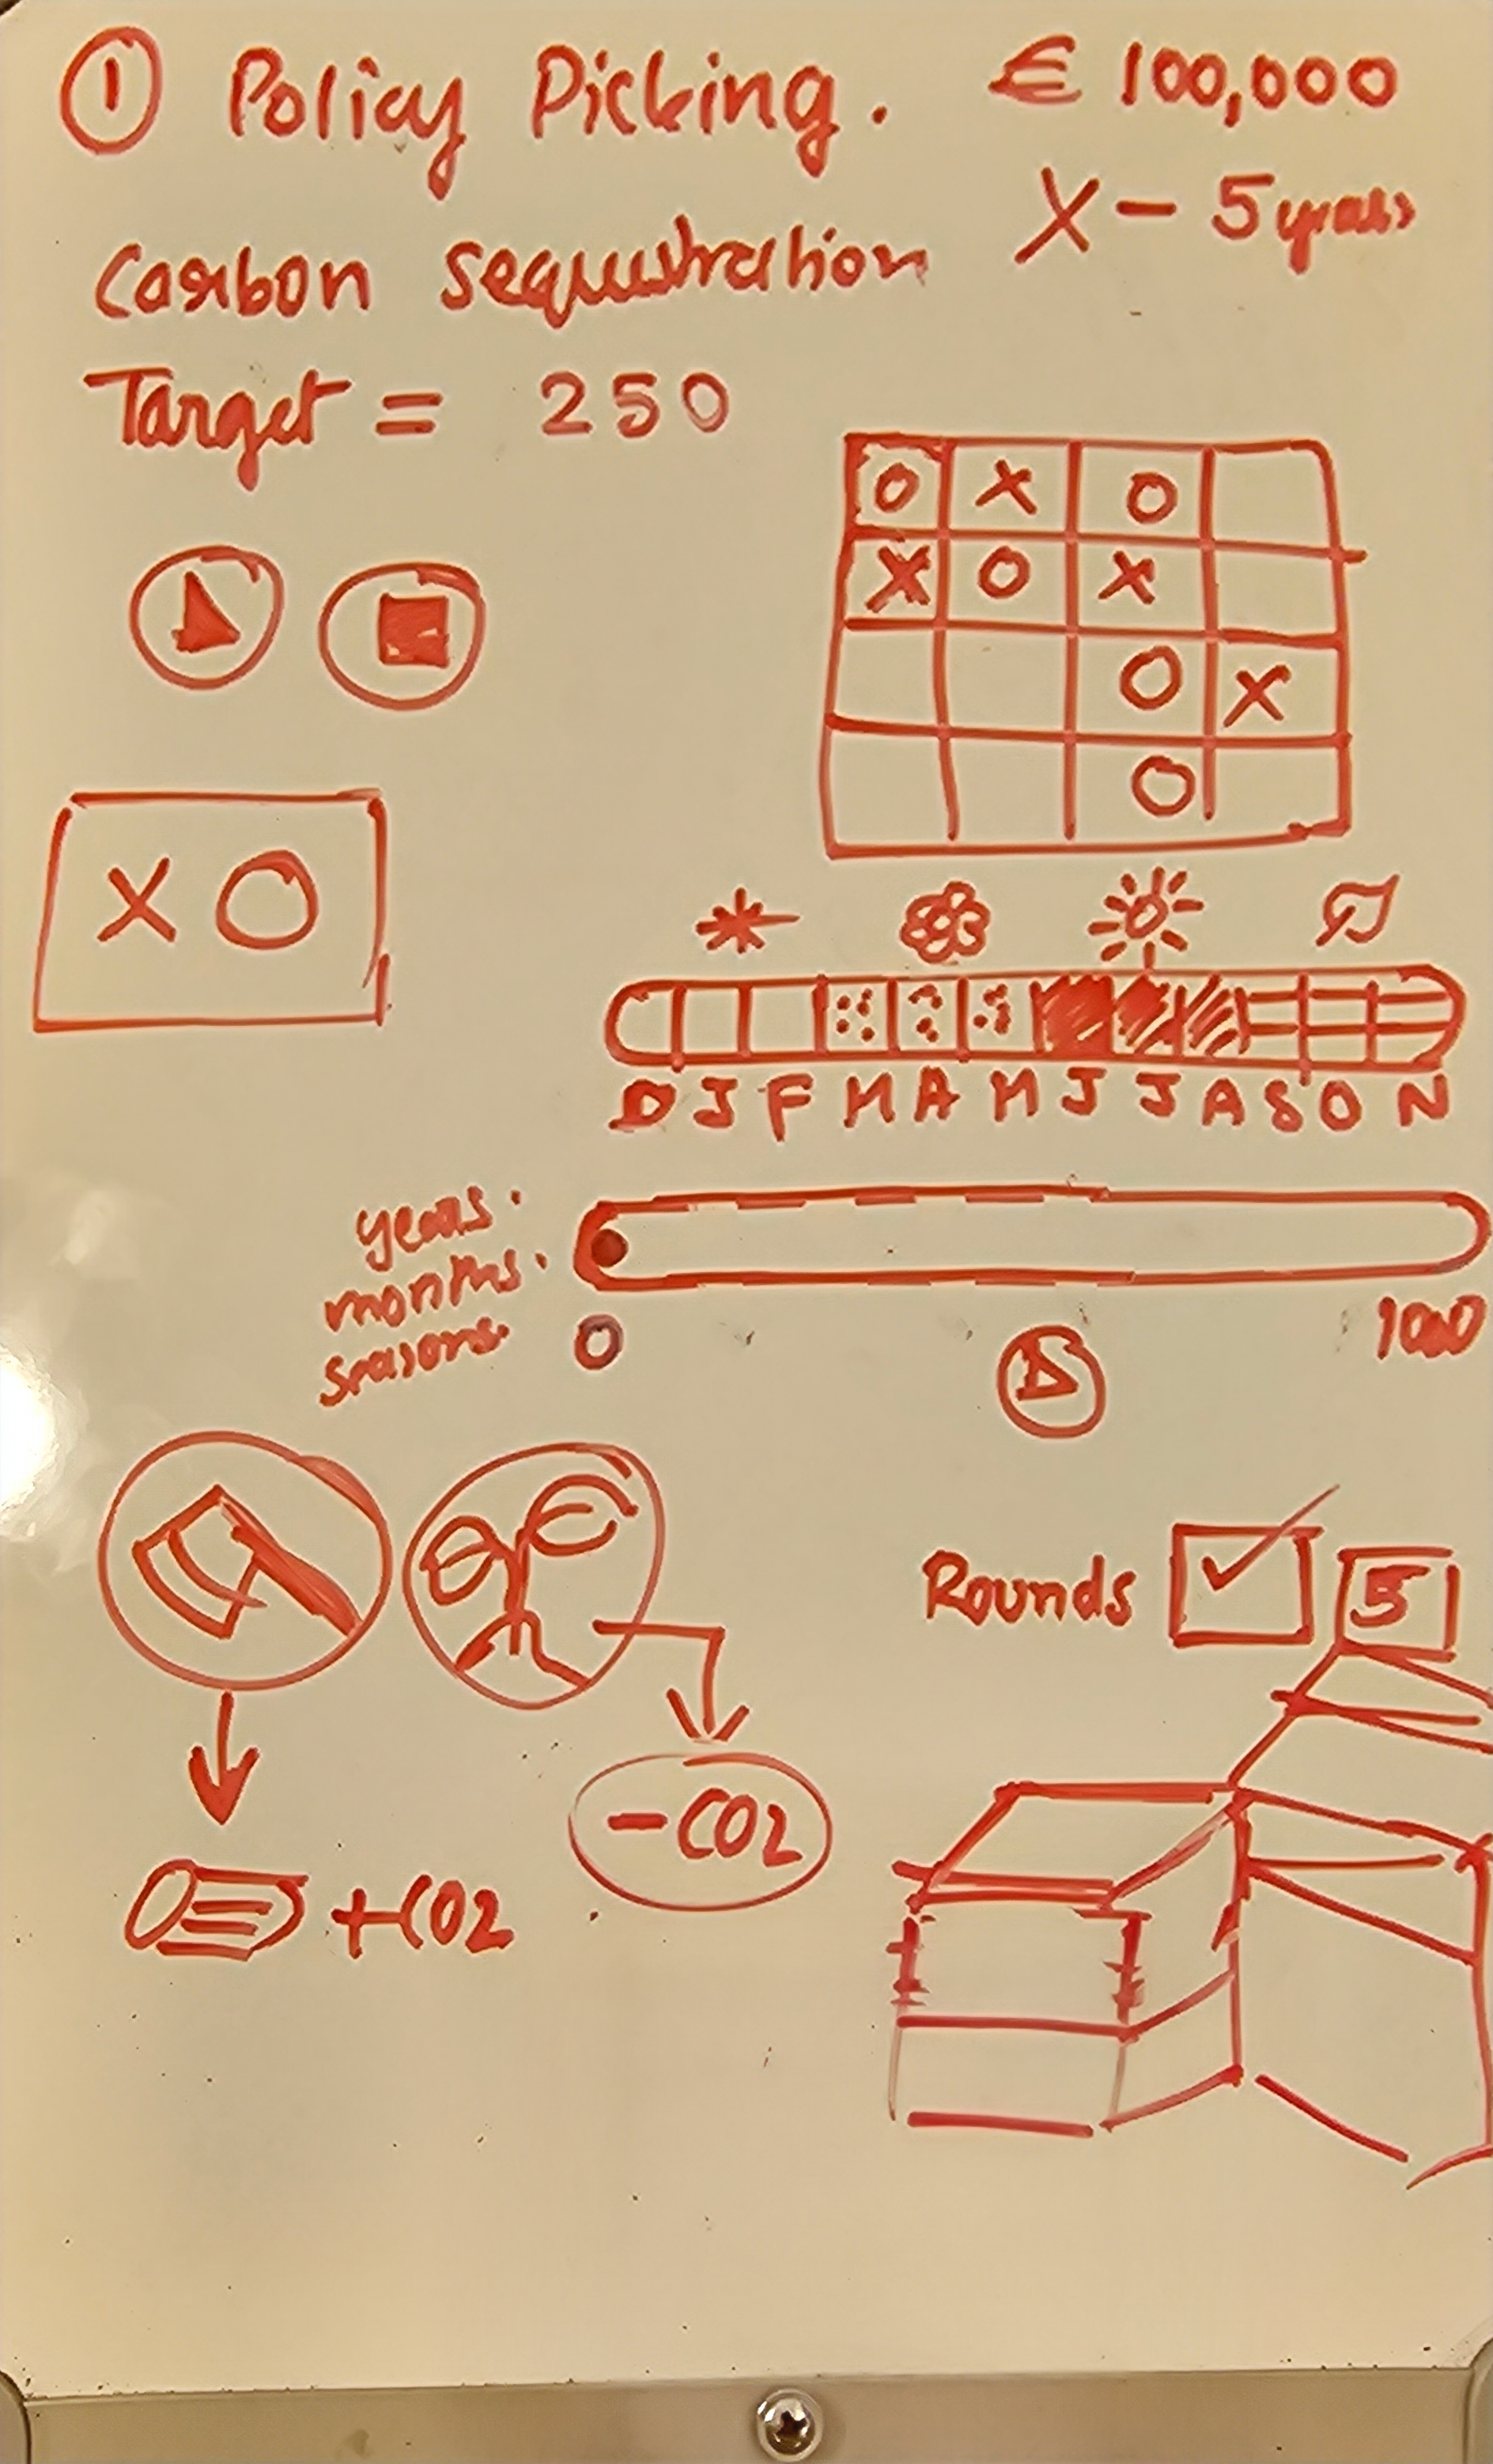 ① Policy Picking. € 100,000
X - 5 years
Carbon sequestration
Target = 250
O X O
X O X
O X
O
X O
D J F M A M J J A S O N
years.
months.
seasons.
0 100
Rounds ✓ 5
-CO2
+CO2